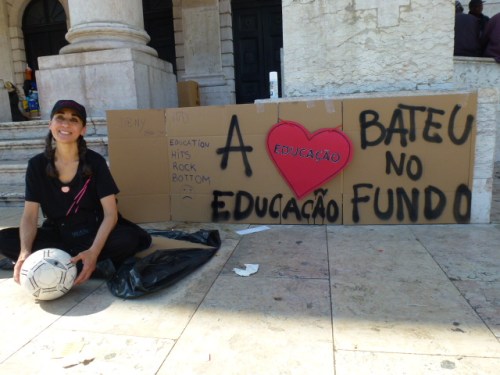 EDUCATION
HITS
ROCK
BOTTOM
A
EDUCAÇÃO
EDUCAÇÃO
BATEU
NO
FUNDO